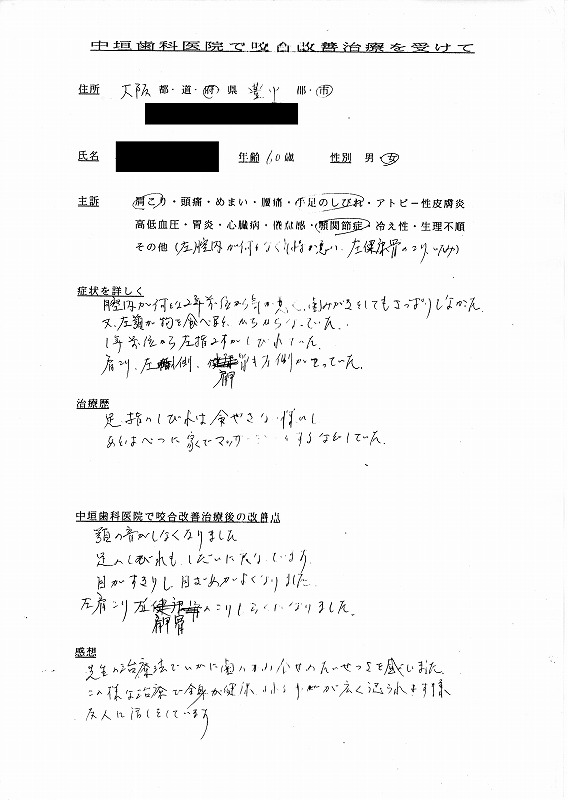 中垣歯科医院で咬合改善治療を受けて
住所 大阪 都・道・府・県 豊中 郡・市
氏名 年齢 60歳 性別 男・女
主訴 肩こり・頭痛・めまい・腰痛・手足のしびれ・アトピー性皮膚炎
高低血圧・胃炎・心臓病・倦怠感・顎関節症・冷え性・生理不順
その他（左腔内が何となく気持が悪い、左肩のこり、いたみ）
症状を詳しく
腔内が何となく2年前位から気が悪く、歯みがきをしてもさっぱりしなかった
又、左顎が物を食べると
1年前位から左指2本がしびれていた
肩こり、左側、
肩甲
治療歴
足、指のしびれは
家でマッサージ するなどしていた
中垣歯科医院で咬合改善治療後の改善点
顎の音がしなくなりました
足のしびれも、しだいに
目がすっきりし、目ざめがよくなりました
左肩こり 左 のこりもらくになりました。
肩甲骨
感想
先生の治療法でいかに歯のかみ合せのたいせつさを感じました
この様な治療で全身が健康 が広く認られます様
友人に話しをしています